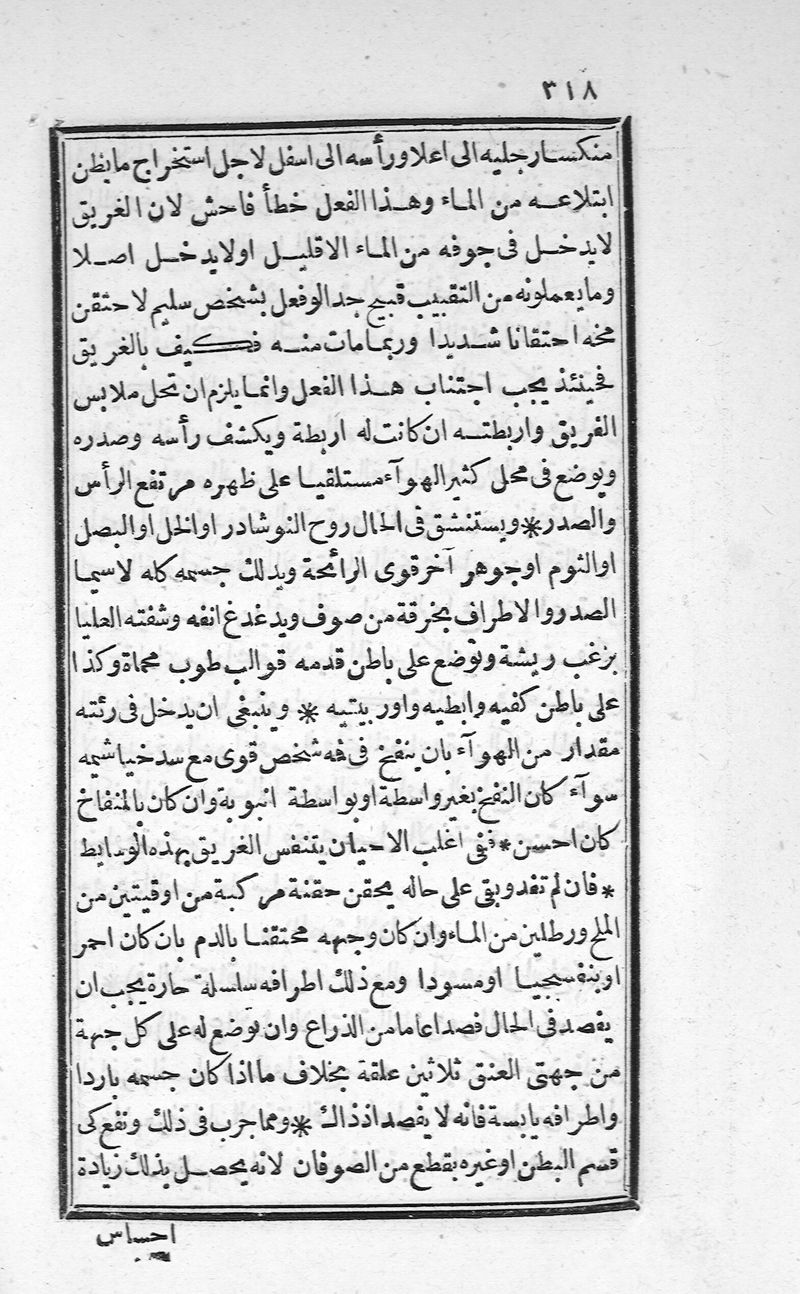 ٣١٨
منكسار جليه الى اعلا ورأسه الى اسفل لاجل استخراج مايظن
ابتلاعه من الماء وهذا الفعل خطأ فاحش لان الغريق
لايدخل فى جوفه من الماء الاقليل اولايدخل اصلا
ومايعملونه من التقبيب قبيح جدا لوفعل بشخص سليم لاحتقن
مخه احتقانا شديدا وربمامات منه فكيف بالغريق
فحينئذ يجب اجتناب هذا الفعل وانمايلزم ان تحل ملابس
الغريق واربطته ان كانت له اربطة ويكشف رأسه وصدره
ويوضع فى محل كثير الهوآء مستلقيا على ظهره مرتفع الرأس
والصدر * ويستنشق فى الحال روح النوشادر اوالخل اوالبصل
اوالثوم اوجوهر آخرقوى الرائحة ويدلك جسمه كله لاسيما
الصدر والاطراف بخرقة من صوف ويدغدغ انفه وشفته العليا
بزغب ريشة وتوضع على باطن قدمه قوالب طوب محماة وكذا
على باطن كفيه وابطيه واوربيتيه * وينبغى ان يدخل فى رئته
مقدار من الهوآء بان ينفخ فى فه شخص قوى مع سد خياشيمه
سوآء كان النفخ بغيرواسطة اوبواسطة انبوبة وان كان بالمنفاخ
كان احسن * ففى اغلب الاحيان يتنفس الغريق بهذه الوسايط
* فان لم تفد وبقى على حاله يحقن حقنة مركبة من اوقيتين من
الملح ورطلين من الماء وان كان وجهه محتقنا بالدم بان كان احمر
اوبنفسجيا اومسودا ومع ذلك اطرافه سلسلة حارة يجب ان
يفصد فى الحال فصدا عاما من الذراع وان توضع له على كل جهة
من جهتى العنق ثلاثين علقة بخلاف مااذا كان جسمه باردا
واطرافه يابسة فانه لا يفصد اذذاك * ومماجرب فى ذلك ونفع كى
قسم البطن اوغيره بقطع من الصوفان لانه يحصل بذلك زيادة
احساس